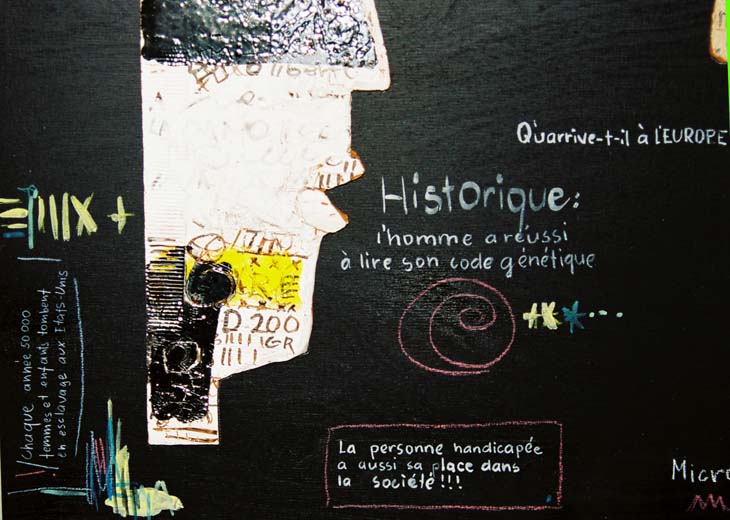 Qu'arrive-t-il à l'EUROPE
Historique:
l'homme a réussi
à lire son code génétique
D 200
IGR
Chaque année 50000
femmes et enfants tombent
en esclavage aux Etats-Unis
La personne handicapée
a aussi sa place dans
la société!!!
Micro